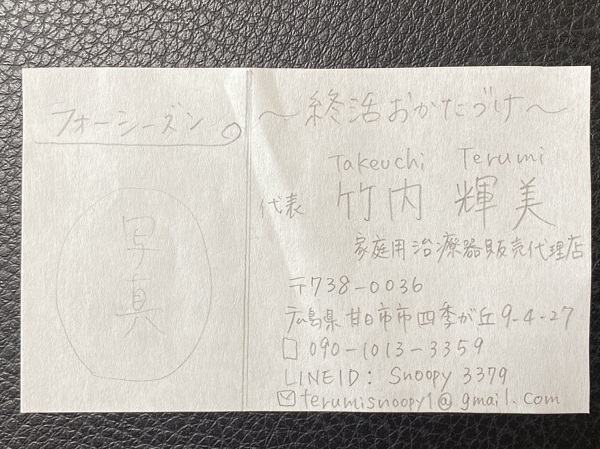 フォーシーズン
写真
～終活おかたづけ～
Takeuchi Terumi
代表 竹内 輝美
家庭用治療器販売代理店
〒738-0036
広島県廿日市市四季が丘9-4-27
090-1013-3359
LINEID: Snoopy 3379
terumisnoopy1@gmail.com